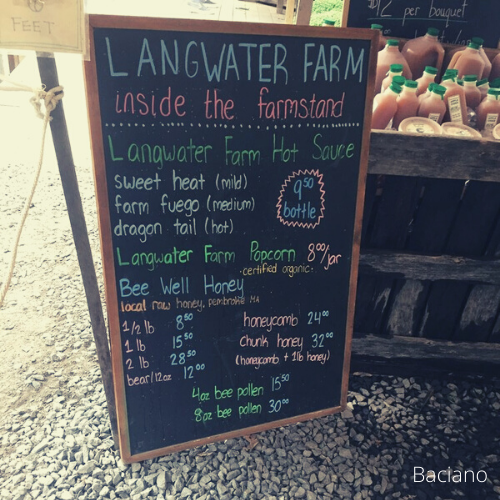 FEET
$12 per bouquet
LANGWATER FARM
inside the farmstand
Langwater Farm Hot Sauce
sweet heat (mild)
farm fuego (medium)
dragon tail (hot)
9.50
bottle
Langwater Farm Popcorn 8.00/jar
·certified organic·
Bee Well Honey
local raw honey, pembroke MA
1/2 lb 8.50
1 lb 15.50
2 lb 28.50
bear/12oz 12.00
honeycomb 24.00
chunk honey 32.00
(honeycomb + 1lb honey)
4oz bee pollen 15.50
8oz bee pollen 30.00
Baciano